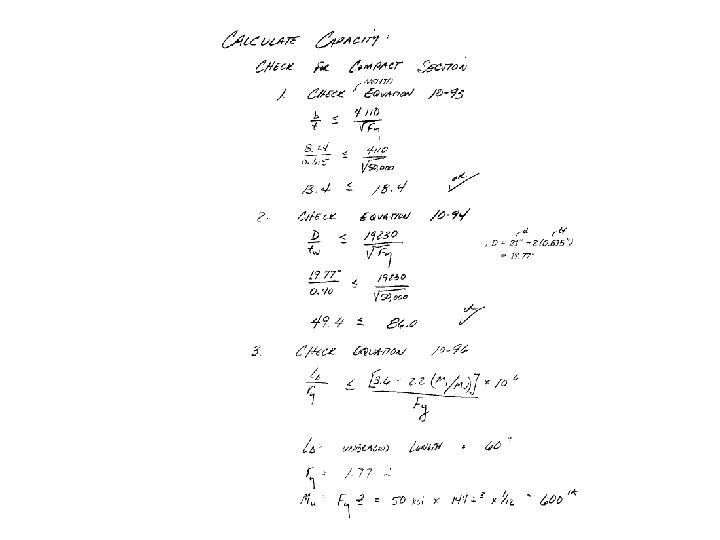 CALCULATE CAPACITY:
CHECK FOR COMPACT SECTION
1. CHECK EQUATION 10-93
b/t ≤ 4110/√Fy
8.24/0.615 ≤ 4110/√50,000
13.4 ≤ 18.4 OK ✓
2. CHECK EQUATION 10-94
D/tw ≤ 19230/√Fy ; D = 21" - 2(0.615")
= 19.77"
19.77"/0.40 ≤ 19230/√50,000
49.4 ≤ 86.0 ok ✓
3. CHECK EQUATION 10-96
Lb/ry ≤ [3.6 - 2.2 (M1/Mu)] × 10⁶/Fy
Lb = UNBRACED LENGTH = 60"
ry = 1.77
Mu = Fy Z = 50 ksi × 144 in³ × 1/12 = 600 'k